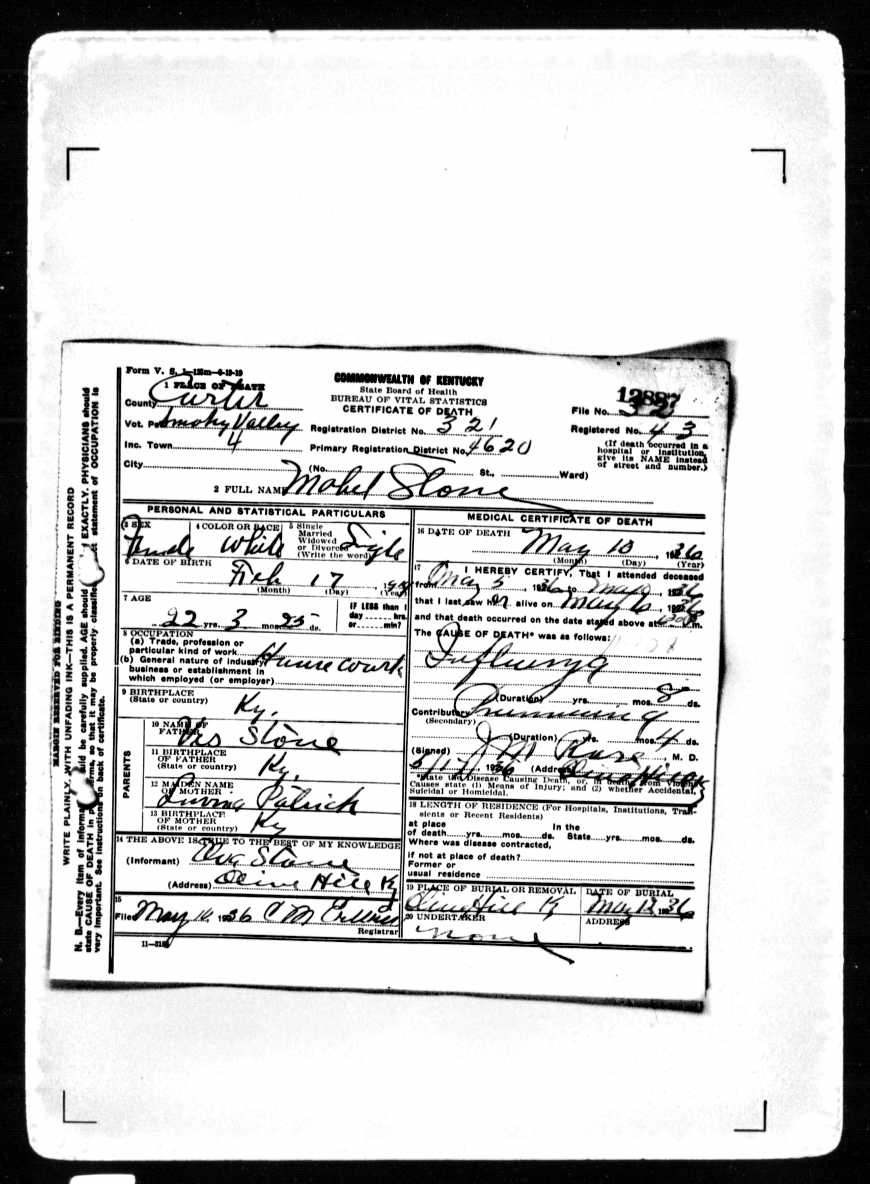 Form V. S. 1—125m—6-19-19
COMMONWEALTH OF KENTUCKY
State Board of Health
BUREAU OF VITAL STATISTICS
CERTIFICATE OF DEATH
1 PLACE OF DEATH
County Carter
File No. 12887
Vot. Pct. Smoky Valley 4
Registration District No. 321
Registered No. 43
Inc. Town
Primary Registration District No. 4620
(If death occurred in a
hospital or institution,
give its NAME instead
of street and number.)
City (No. St., Ward)
2 FULL NAME Mabel Stone
PERSONAL AND STATISTICAL PARTICULARS
3 SEX Female
4 COLOR OR RACE White
5 Single
Married
Widowed
or Divorced
(Write the word)
6 DATE OF BIRTH
Feb 17
(Month) (Day) (Year)
7 AGE
22 yrs. 3 mos. 25 ds.
IF LESS than 1
day hrs.
or min?
8 OCCUPATION
(a) Trade, profession or
particular kind of work
(b) General nature of industry
business or establishment in
which employed (or employer)
Housework
9 BIRTHPLACE
(State or country)
Ky.
PARENTS
10 NAME OF
FATHER Stone
11 BIRTHPLACE
OF FATHER
(State or country)
Ky.
12 MAIDEN NAME
OF MOTHER
Patrick
13 BIRTHPLACE
OF MOTHER
(State or country)
Ky
14 THE ABOVE IS TRUE TO THE BEST OF MY KNOWLEDGE
(Informant) Stone
(Address) Olive Hill Ky
15
Filed May 16, 1936 C M
Registrar
11—3184
MEDICAL CERTIFICATE OF DEATH
16 DATE OF DEATH
May 10, 1936
(Month) (Day) (Year)
17 I HEREBY CERTIFY, That I attended deceased
from May 5, 1936 to May 10, 1936
that I last saw her alive on May 10, 1936
and that death occurred on the date stated above at m.
The CAUSE OF DEATH* was as follows:
Influenza
(Duration) yrs. mos. 8 ds.
Contributory
(Secondary)
(Duration) yrs. mos. 4 ds.
(Signed) J M Rose, M. D.
1936 (Address) Olive Hill Ky
*State the Disease Causing Death, or, in deaths from Violent
Causes state (1) Means of Injury; and (2) whether Accidental,
Suicidal or Homicidal.
18 LENGTH OF RESIDENCE (For Hospitals, Institutions, Tran-
sients or Recent Residents)
at place
of death yrs. mos. ds.
In the
State yrs. mos. ds.
Where was disease contracted,
if not at place of death?
Former or
usual residence
19 PLACE OF BURIAL OR REMOVAL
Olive Hill Ky
DATE OF BURIAL
May 12, 1936
20 UNDERTAKER
None
ADDRESS
MARGIN RESERVED FOR BINDING
WRITE PLAINLY, WITH UNFADING INK—THIS IS A PERMANENT RECORD
N. B.—Every item of information should be carefully supplied. AGE should EXACTLY. PHYSICIANS should
state CAUSE OF DEATH in terms, so that it may be properly classified. statement of OCCUPATION is
very important. See instructions on back of certificate.